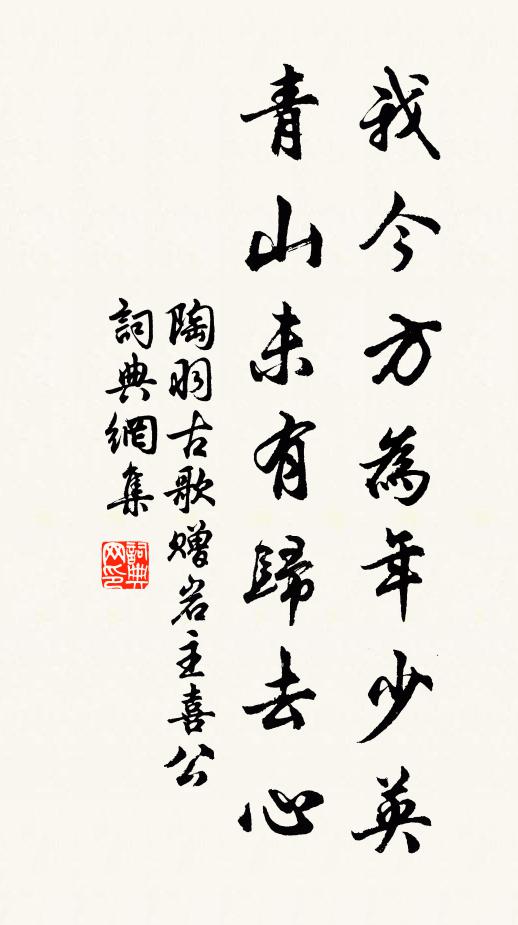 我今方為年少英
青山未有歸去心
陶羽古歌贈岩主喜公
詞典網集
詞典網印